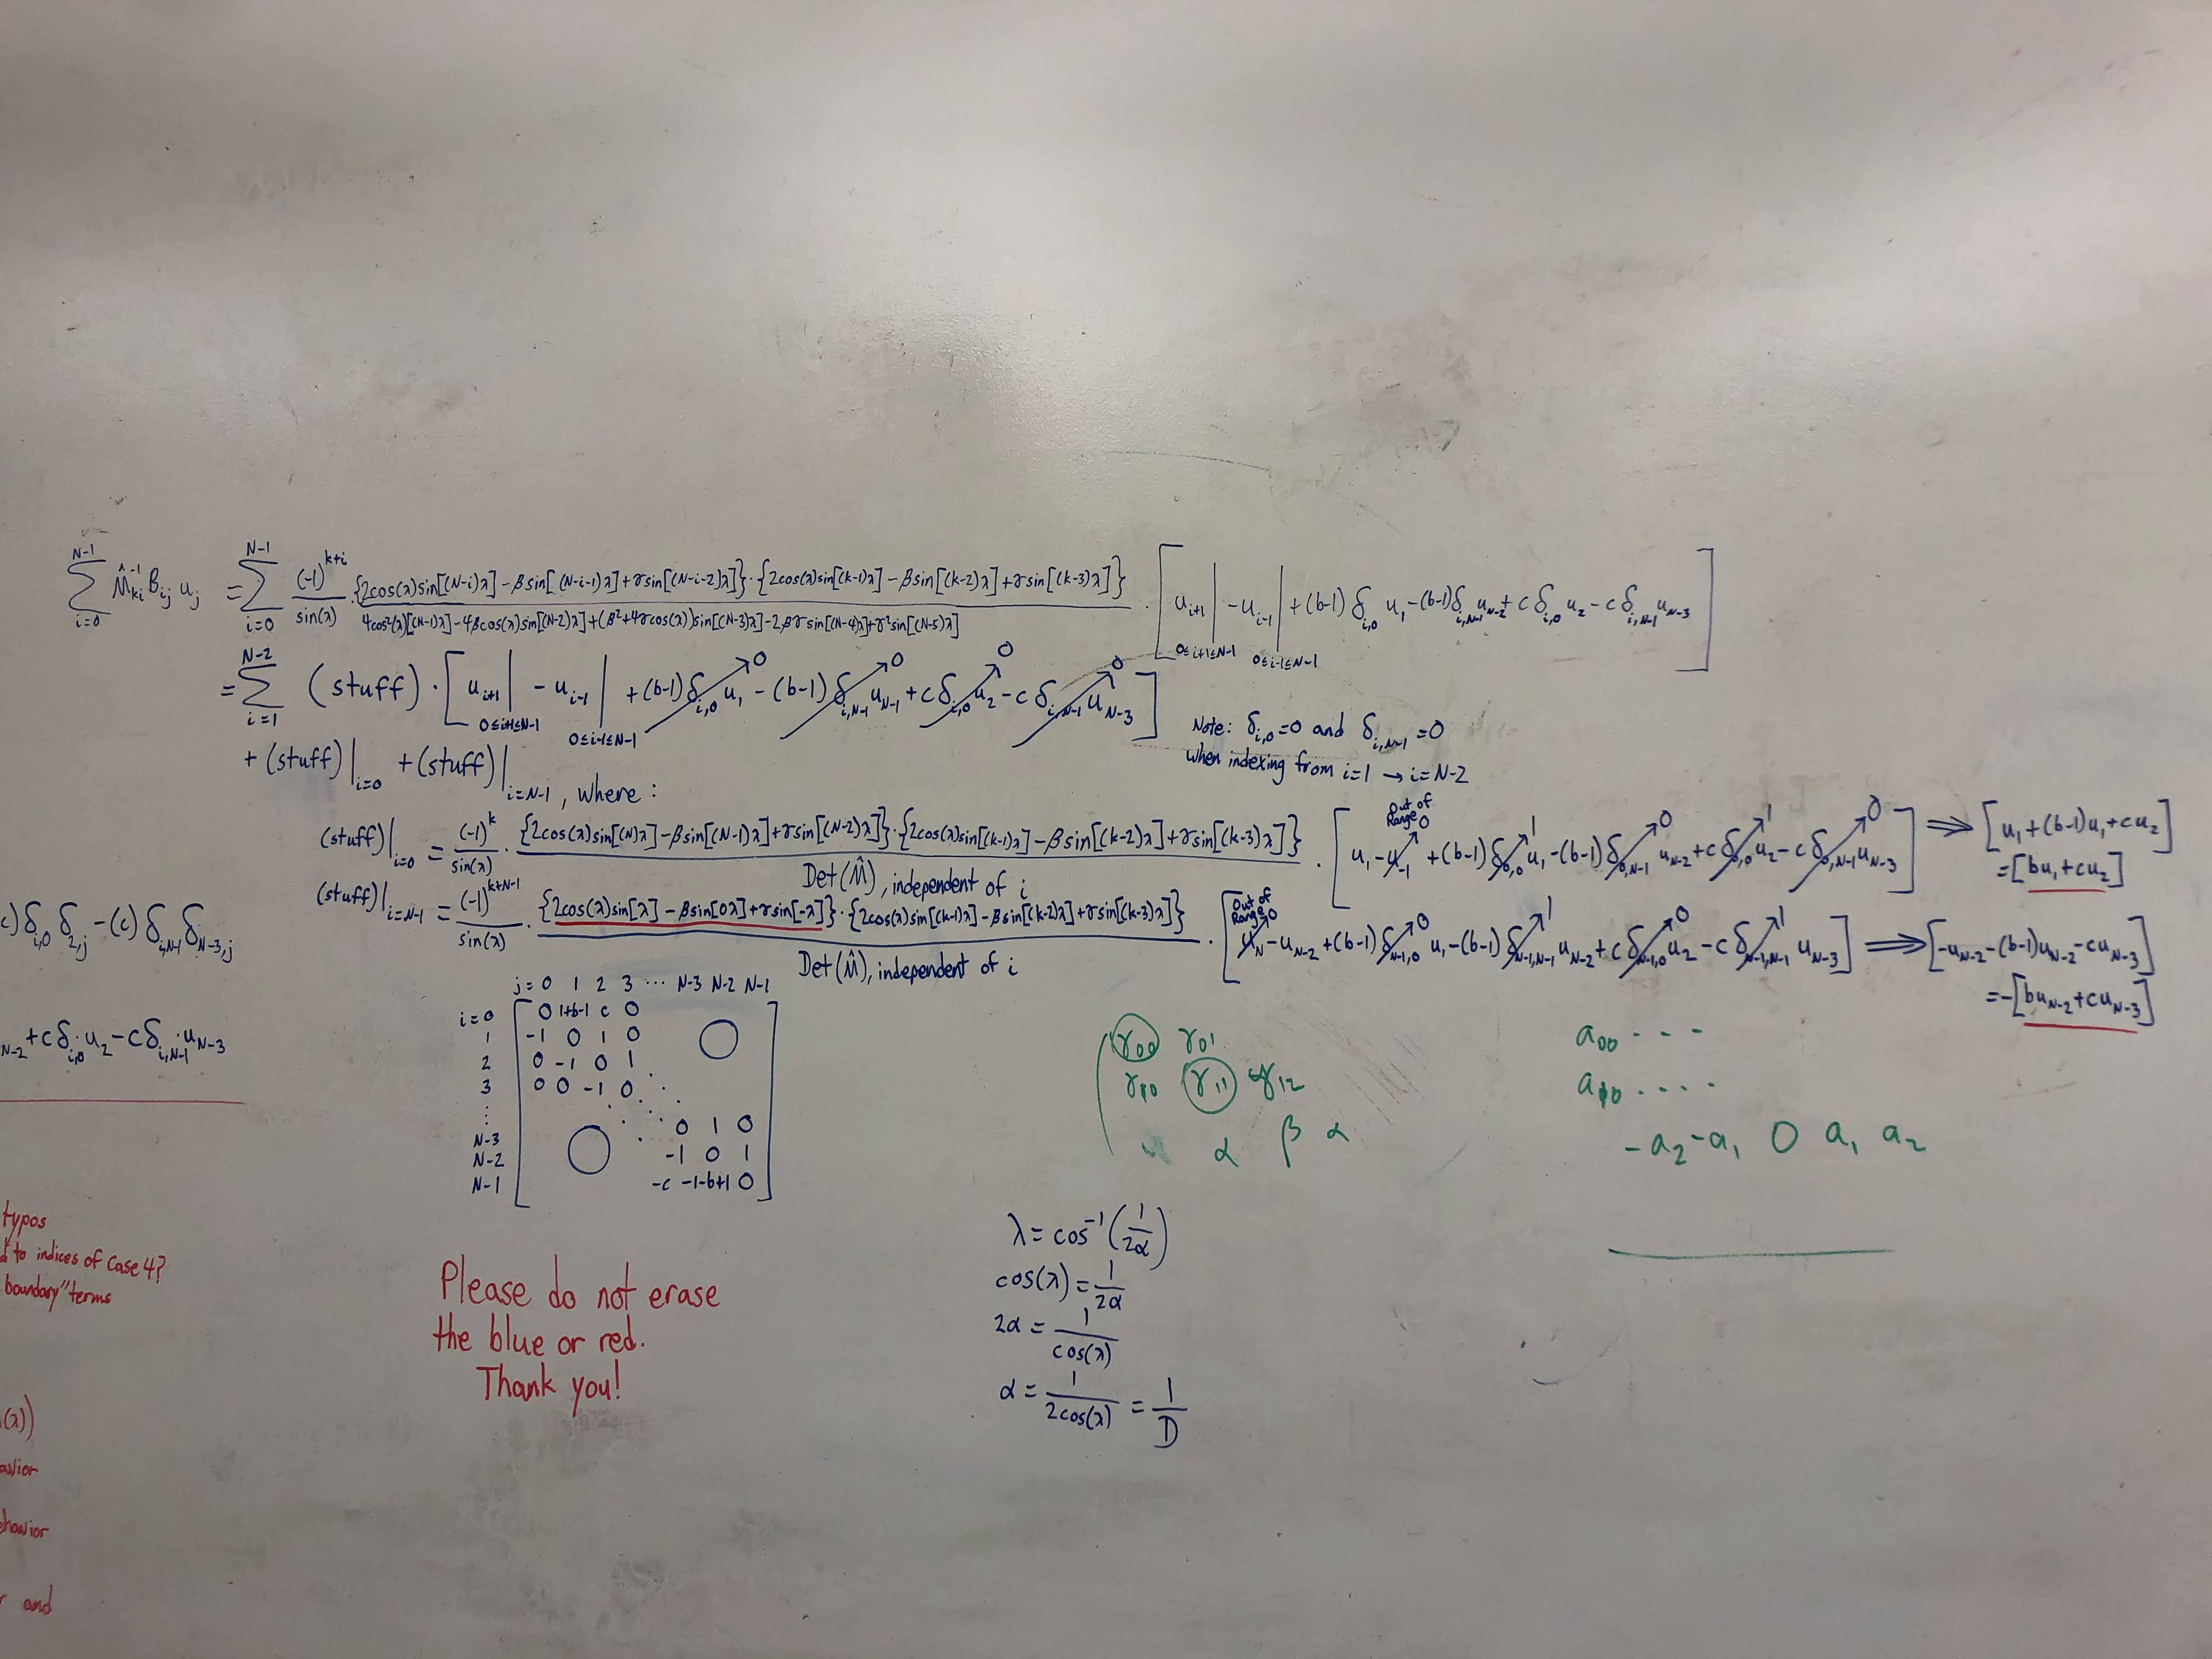 \sum_{i=0}^{N-1} \hat{M}^{-1}_{ki} B_{ij} u_j = \sum_{i=0}^{N-1} \frac{(-1)^{k+i}}{\sin(λ)} · \frac{\{2cos(λ)sin[(N-i)λ] - βsin[(N-i-1)λ] + γsin[(N-i-2)λ]\} · \{2cos(λ)sin[(k-1)λ] - βsin[(k-2)λ] + γsin[(k-3)λ]\}}{4cos²(λ)[(N-1)λ] - 4βcos(λ)sin[(N-2)λ] + (β²+4γcos(λ))sin[(N-3)λ] - 2βγsin[(N-4)λ] + γ²sin[(N-5)λ]} · [u_{i+1}|_{0≤i+1≤N-1} - u_{i-1}|_{0≤i-1≤N-1} + (b-1)δ_{i,0} u_1 - (b-1)δ_{i,N-1} u_{N-2} + cδ_{i,0} u_2 - cδ_{i,N-1} u_{N-3}]
= \sum_{i=1}^{N-2} (stuff) · [u_{i+1}|_{0≤i+1≤N-1} - u_{i-1}|_{0≤i-1≤N-1} + (b-1)δ_{i,0} u_1 - (b-1)δ_{i,N-1} u_{N-1} + cδ_{i,0} u_2 - cδ_{i,N-1} u_{N-3}] 0 0 0 0
Note: δ_{i,0}=0 and δ_{i,N-1}=0
when indexing from i=1 → i=N-2
+ (stuff)|_{i=0} + (stuff)|_{i=N-1}, where:
(stuff)|_{i=0} = \frac{(-1)^k}{sin(λ)} · \frac{\{2cos(λ)sin[(N)λ] - βsin[(N-1)λ] + γsin[(N-2)λ]\} · \{2cos(λ)sin[(k-1)λ] - βsin[(k-2)λ] + γsin[(k-3)λ]\}}{Det(\hat{M}), independent of i} · [u_1 - u_{-1} + (b-1)δ_{0,0} u_1 - (b-1)δ_{0,N-1} u_{N-2} + cδ_{0,0} u_2 - cδ_{0,N-1} u_{N-3}] ⇒ [u_1 + (b-1)u_1 + cu_2]
Out of Range 0 1 0 1 0
= [bu_1 + cu_2]
(stuff)|_{i=N-1} = \frac{(-1)^{k+N-1}}{sin(λ)} · \frac{\{2cos(λ)sin[λ] - βsin[0λ] + γsin[-λ]\} · \{2cos(λ)sin[(k-1)λ] - βsin[(k-2)λ] + γsin[(k-3)λ]\}}{Det(\hat{M}), independent of i} · [u_N - u_{N-2} + (b-1)δ_{N-1,0} u_1 - (b-1)δ_{N-1,N-1} u_{N-2} + cδ_{N-1,0} u_2 - cδ_{N-1,N-1} u_{N-3}] ⇒ [-u_{N-2} - (b-1)u_{N-2} - cu_{N-3}]
Out of Range 0 0 1 0 1
= -[bu_{N-2} + cu_{N-3}]
c)δ_{i,0} δ_{2,j} - (c) δ_{i,N-1} δ_{N-3,j}
_{N-2} + cδ_{i,0} u_2 - cδ_{i,N-1} u_{N-3}
j= 0 1 2 3 ... N-3 N-2 N-1
i=0 0 1+b-1 c 0
1 -1 0 1 0
2 0 -1 0 1
3 0 0 -1 0
⋮
N-3 0 1 0
N-2 -1 0 1
N-1 -c -1-b+1 0
γ_{00} γ_{01}
γ_{10} γ_{11} γ_{12}
α β α
a_{00} - - -
a_{10} . . . .
-a_2 -a_1 0 a_1 a_2
λ = cos^{-1}(\frac{1}{2α})
cos(λ) = \frac{1}{2α}
2α = \frac{1}{cos(λ)}
α = \frac{1}{2cos(λ)} = \frac{1}{D}
Please do not erase
the blue or red.
Thank you!
typos
d to indices of Case 4?
boundary" terms
(λ))
avior
ehavior
r and